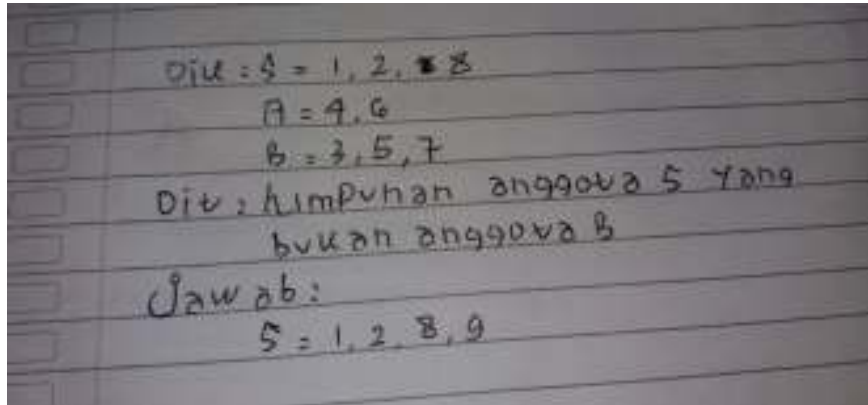 Dik : S = 1, 2, 8
A = 4, 6
B = 3, 5, 7
Dit : himpunan anggota S yang
bukan anggota B
Jawab :
S = 1, 2, 8, 9